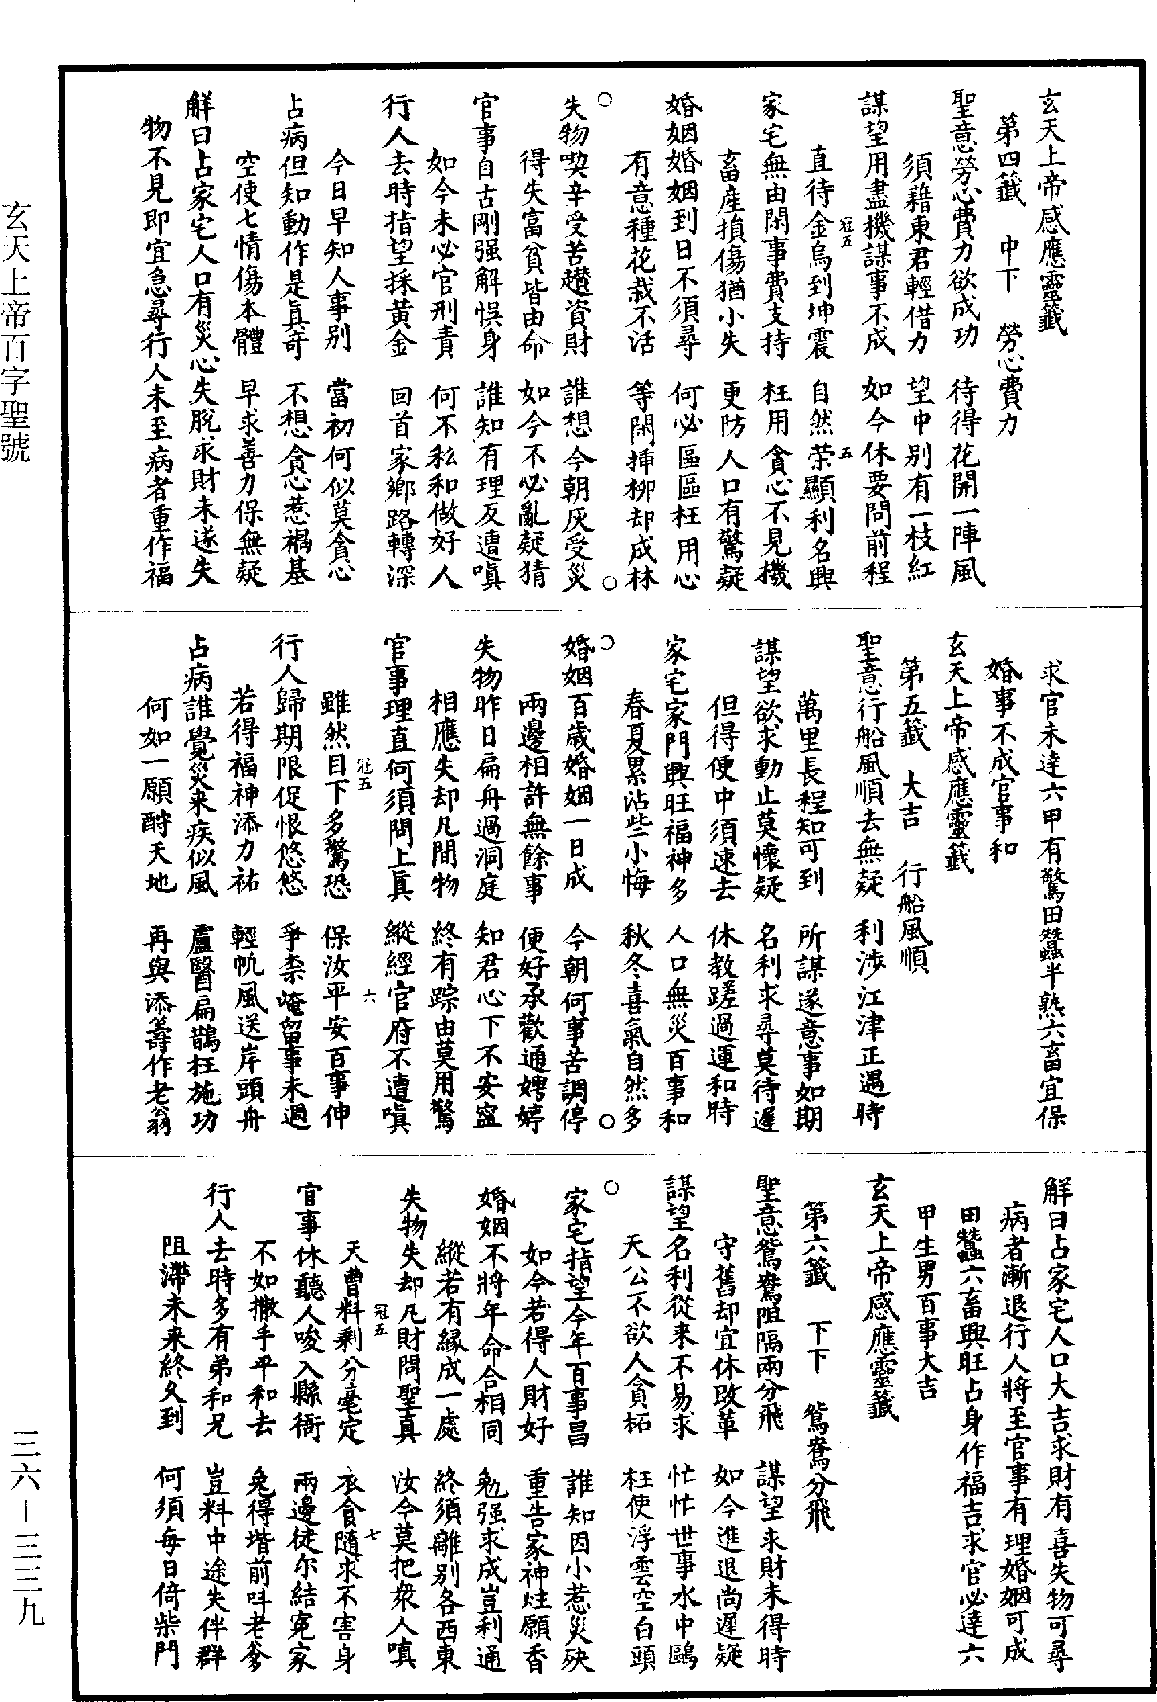 玄天上帝感應靈籤
第四籤　中下　勞心費力
聖意勞心費力欲成功　待得花開一陣風
須藉東君輕借力　望中別有一枝紅
謀望用盡機謀事不成　如今休要問前程
冠五　五
直待金烏到坤震　自然榮顯利名興
家宅無由閑事費支持　枉用貪心不見機
畜產損傷猶小失　更防人口有驚疑
婚姻婚姻到日不須尋　何必區區枉用心
有意種花栽不活　等閑揷柳却成林
○　○
失物喫辛受苦趲資財　誰想今朝灰受災
得失富貧皆由命　如今不必亂疑猜
官事自古剛强解悞身　誰知有理反遭嗔
如今未必官刑責　何不私和做好人
行人去時指望採黃金　回首家鄉路轉深
今日早知人事別　當初何似莫貪心
占病但知動作是眞奇　不想貪心惹禍基
空使七情傷本體　早求善力保無疑
解曰占家宅人口有災心失脫求財未遂失
物不見即宜急尋行人未至病者重作福
求官未達六甲有驚田蠶半熟六畜宜保
婚事不成官事和
玄天上帝感應靈籤
第五籤　大吉　行船風順
聖意行船風順去無疑　利涉江津正遇時
萬里長程知可到　所謀遂意事如期
謀望欲求動止莫懷疑　名利求尋莫待遲
但得便中須速去　休教蹉過運和時
家宅家門興旺福神多　人口無災百事和
春夏累沾些小悔　秋冬喜氣自然多
○　○
婚姻百歲婚姻一日成　今朝何事苦調停
兩邊相許無餘事　便好承歡通娉婷
失物昨日扁舟過洞庭　知君心下不安寧
相應失却凡間物　終有踪由莫用驚
官事理直何須問上眞　縱經官府不遭嗔
冠五　六
雖然目下多驚恐　保汝平安百事伸
行人歸期限促恨悠悠　爭柰崦留事未週
若得福神添力祐　輕帆風送岸頭舟
占病誰覺災来疾似風　盧醫扁鵲枉施功
何如一願酧天地　再與添籌作老翁
解曰占家宅人口大吉求財有喜失物可尋
病者漸退行人將至官事有理婚姻可成
田蠶六畜興旺占身作福吉求官必達六
甲生男百事大吉
玄天上帝感應靈籤
第六籤　下下　鴛鴦分飛
聖意鴛鴦阻隔兩分飛　謀望求財未得時
守舊却宜休改革　如今進退尚遲疑
謀望名利從来不易求　忙忙世事水中鷗
天公不欲人貪柘　枉使浮雲空白頭
○
家宅指望今年百事昌　誰知因小惹災殃
如今若得人財好　重告家神炷願香
婚姻不將年命合相同　勉强求成豈利通
縱若有緣成一處　終須離別各西東
失物失却凡財問聖眞　汝今莫把衆人嗔
冠五　七
天曹料剩分毫定　衣食隨求不害身
官事休聽人唆入縣衙　兩邊徒尔結寃家
不如撒手平和去　免得堦前呌老爹
行人去時多有弟和兄　豈料中途失伴群
阻滯未来終久到　何須每日倚柴門
玄天上帝百字聖號
三六－三三九